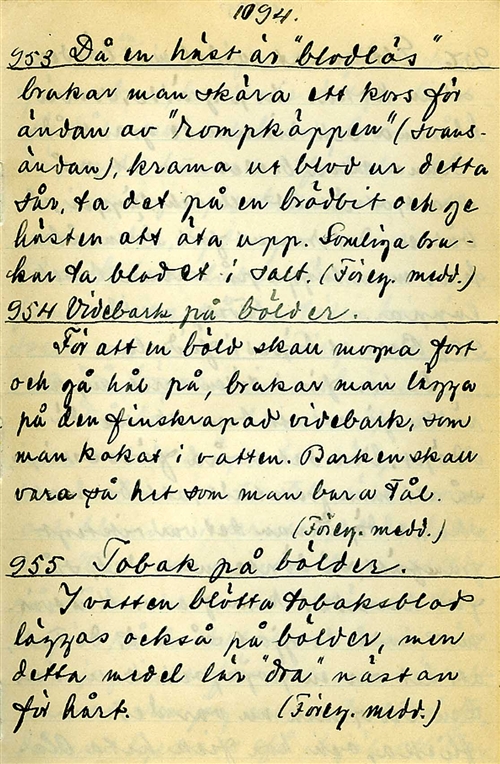 1094.
953 Då en häst är "blodlös"
brukar man skära ett kors för
ändan av "rompkäppen" (svans-
ändan), krama ut blod ur detta
sår, ta det på en brödbit och ge
hästen att äta upp. Somliga bru-
kar ta blodet i salt. (Förey. medd.)
954 Videbark på bölder.
För att en böld skall mogna fort
och gå hål på, brukar man lägga
på den finskrapad videbark, som
man kokat i vatten. Barken skall
vara så het som man bara tål.
(Förey. medd.)
955 Tobak på bölder.
I vatten blötta tobaksblad
läggas också på bölder, men
detta medel lär "dra" nästan
för hårt. (Förey. medd.)